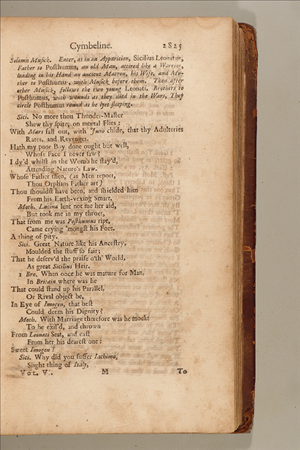 Cymbeline. 2825
Solemn Musick. Enter, as in an Apparition, Sicilius Leonatus,
Father to Posthumus, an old Man, attired like a Warrior,
leading in his Hand an ancient Matron, his Wife, and Mo-
ther to Posthumus, with Musick before them. Then after
other Musick, follows the two young Leonati, Brothers to
Posthumus, with wounds as they died in the Wars. They
circle Posthumus round as he lyes sleeping.
Sici. No more thou Thunder-Master
Shew thy spite, on mortal Flies:
With Mars fall out, with Juno chide, that thy Adulteries
Rates, and Revenges.
Hath my poor Boy done ought but well,
Whose Face I never saw?
I dy'd whilst in the Womb he stay'd,
Attending Nature's Law.
Whose Father then, (as Men report,
Thou Orphans Father art)
Thou shouldst have been, and shielded him
From his Earth-vexing Smart.
Moth. Lucina lent not me her aid,
But took me in my throws,
That from me was Posthumus ript,
Came crying 'mongst his Foes.
A thing of pity.
Sici. Great Nature like his Ancestry,
Moulded the stuff so fair;
That he deserv'd the praise o'th' World,
As great Sicilius Heir.
1 Bro. When once he was mature for Man,
In Britain where was he
That could stand up his Parallel,
Or Rival object be,
In Eye of Imogen, that best
Could deem his Dignity?
Moth. With Marriage therefore was he mockt
To be exil'd, and thrown
From Leonati Seat, and cast
From her his dearest one?
Sweet Imogen?
Sici. Why did you suffer Iachimo,
Slight thing of Italy,
VOL. V. M To